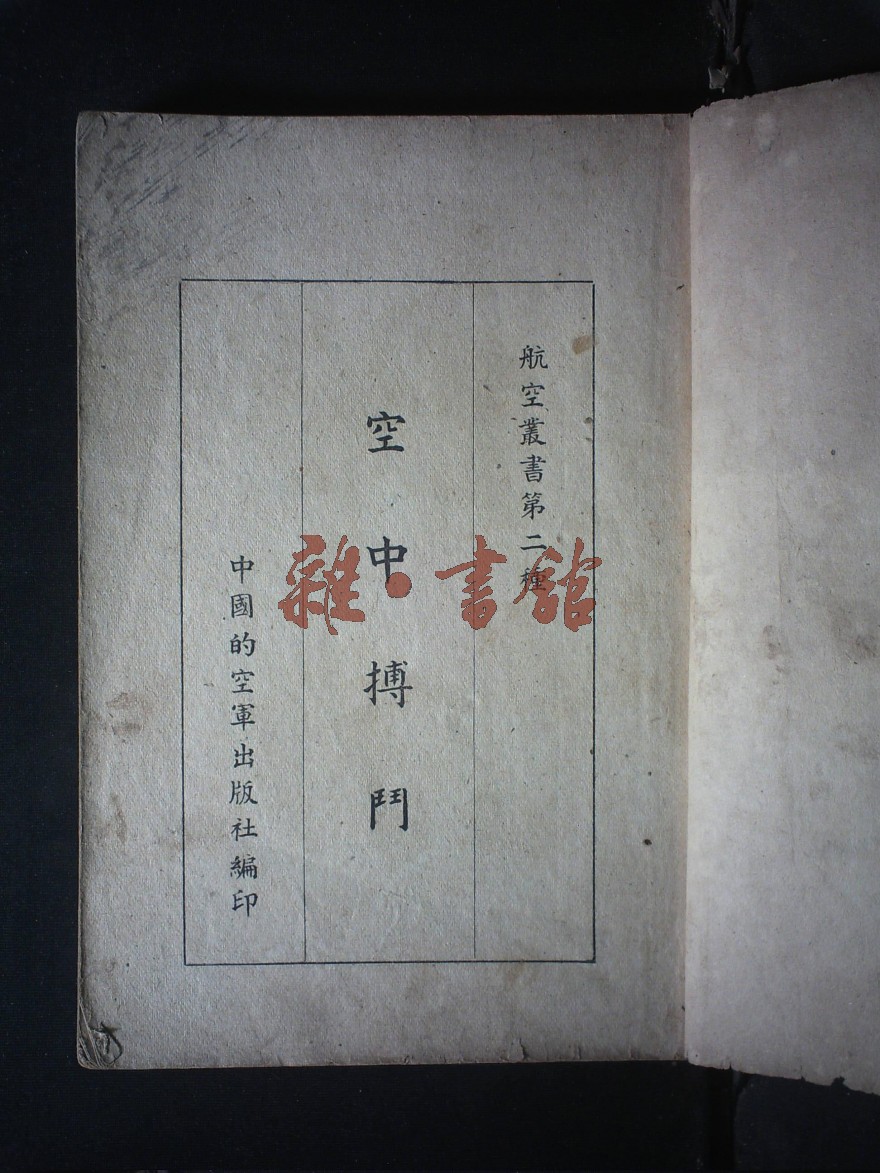 航空叢書第二種
空中搏鬥
中國的空軍出版社編印
雜·書館